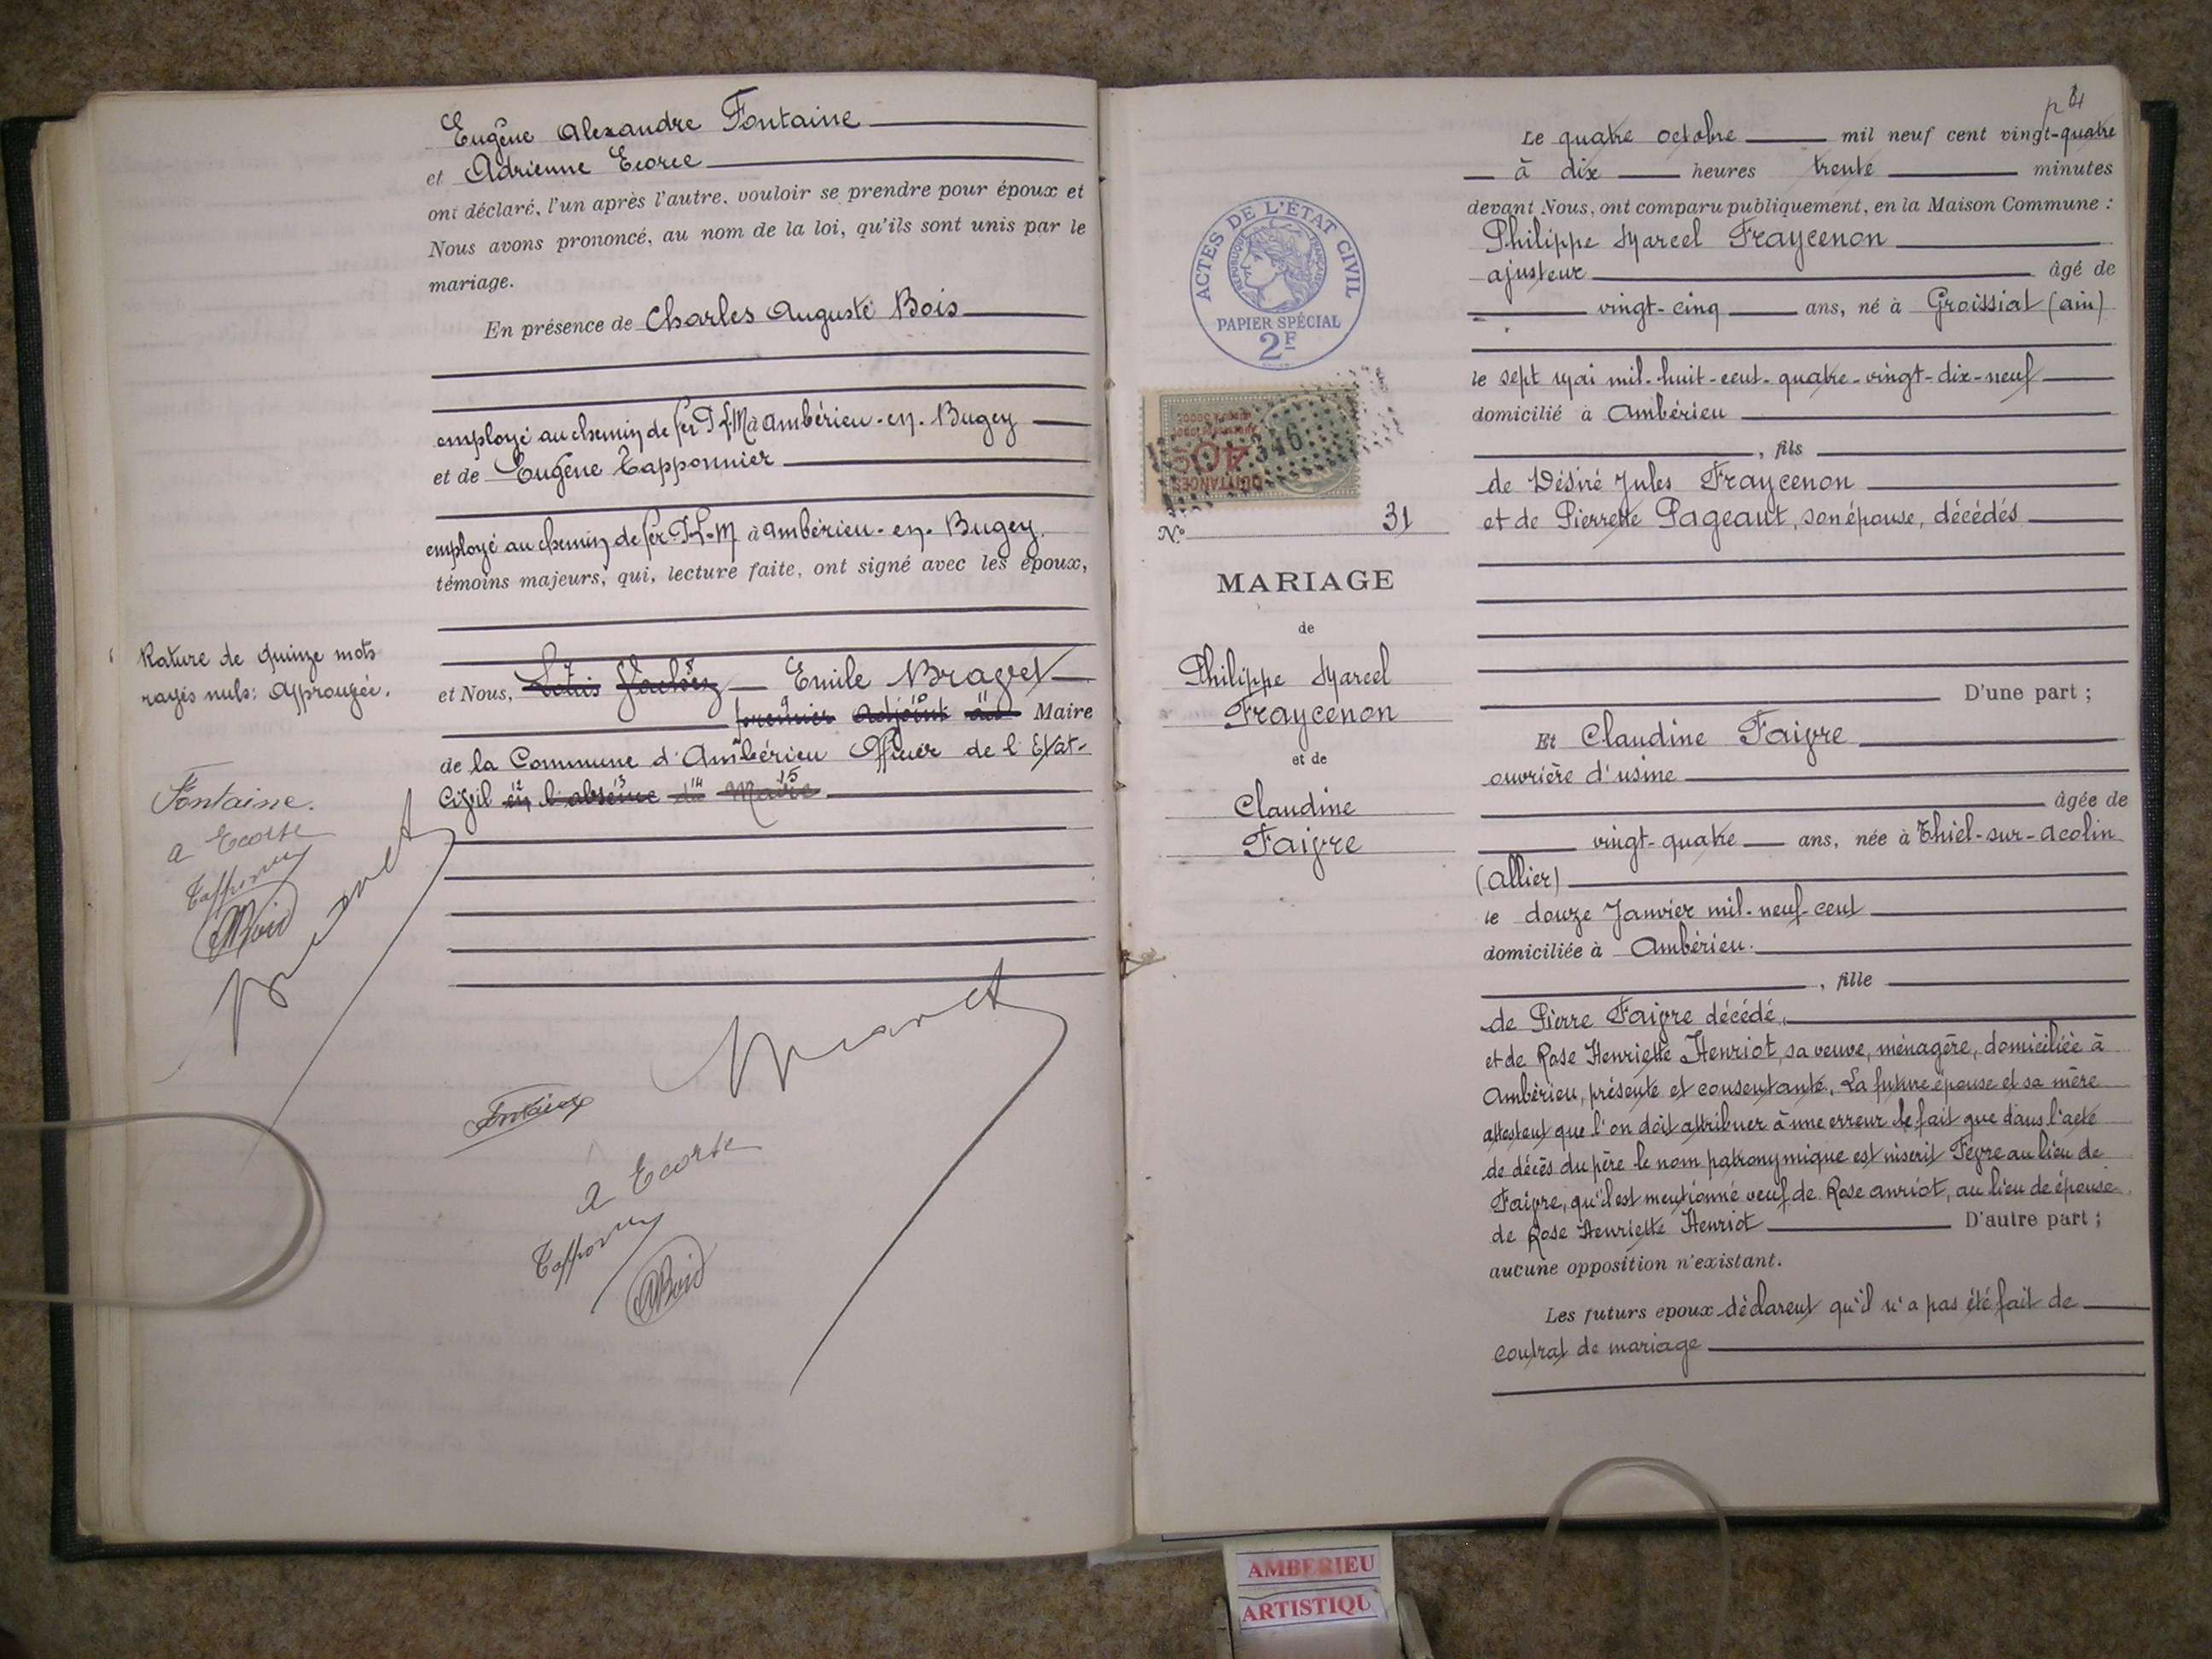 Eugène Alexandre Fontaine
et Adrienne Ecorce
ont déclaré, l'un après l'autre, vouloir se prendre pour époux et
Nous avons prononcé, au nom de la loi, qu'ils sont unis par le
mariage.
En présence de Charles Auguste Bois
employé au chemin de fer P-L-M à Ambérieu-en-Bugey
et de Eugène Tapponnier
employé au chemin de fer P-L-M à Ambérieu-en-Bugey.
témoins majeurs, qui, lecture faite, ont signé avec les époux,
Rature de quinze mots
rayés nuls: Approuvée.
et Nous, Louis Emile Bravet
premier Adjoint au Maire
de la Commune d'Ambérieu Officier de l'Etat-
Civil en l'absence du Maire
Fontaine.
a Ecorse
Bravet
Fontaine
a Ecorse
Bravet
p 4
ACTES DE L'ÉTAT CIVIL
RÉPUBLIQUE FRANÇAISE
PAPIER SPÉCIAL
2F
QUITTANCES
40c
346
N° 31
MARIAGE
de
Philippe Marcel
Fraycenon
et de
Claudine
Faivre
Le quatre octobre mil neuf cent vingt-quatre
à dix heures trente minutes
devant Nous, ont comparu publiquement, en la Maison Commune :
Philippe Marcel Fraycenon
ajusteur âgé de
vingt-cinq ans, né à Groissiat (Ain)
le sept mai mil-huit-cent-quatre-vingt-dix-neuf
domicilié à Ambérieu
, fils
de Désiré Jules Fraycenon
et de Pierrette Pageaut, son épouse, décédés
D'une part ;
Et Claudine Faivre
ouvrière d'usine
âgée de
vingt-quatre ans, née à Thiel-sur-Acolin
(Allier)
le douze Janvier mil-neuf-cent
domiciliée à Ambérieu.
, fille
de Pierre Faivre décédé,
et de Rose Henriette Henriot, sa veuve, ménagère, domiciliée à
Ambérieu, présente et consentante. La future épouse et sa mère
attestent que l'on doit attribuer à une erreur le fait que dans l'acte
de décès du père le nom patronymique est inscrit Fevre au lieu de
Faivre, qu'il est mentionné veuf de Rose Anriot, au lieu de épouse
de Rose Henriette Henriot D'autre part ;
aucune opposition n'existant.
Les futurs époux déclarent qu'il n'a pas été fait de
contrat de mariage
AMBERIEU
ARTISTIQU